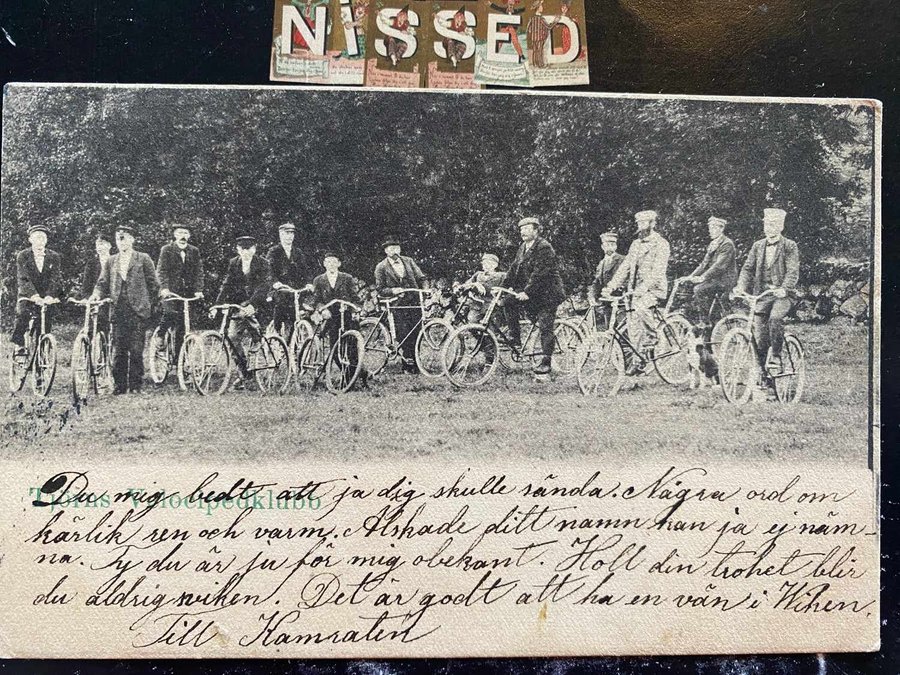 NISSED
Tjörns Velocipedklubb
Du mig bedt att ja dig skulle sända. Några ord om
kärlik ren och varm. Alskade ditt namn kan ja ej näm-
na. Ty du är ju för mig obekant. Holl din trohet blir
du aldrig sviken. Det är godt att ha en vän i Wiken.
Till Kamraten